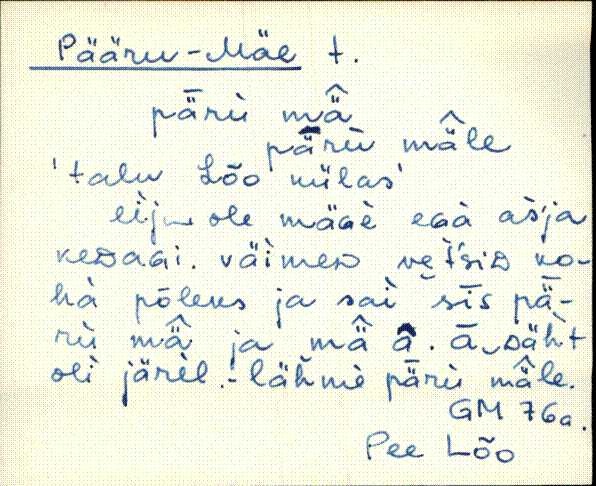 Pääru-Mäe t.
pǟrù mä̂
pǟrù mä̂le
'talu Lõo külas'
eìju ole mäGè eGà aš́ja
keDaGi. väimeD veťsiD ko-
hà põleks ja saì sīs pǟ-
rù mä̂ ja mä̂ â. ā‿Däh̀t
oli järèl. - lähme pǟrù mä̂le.
GM 76a.
Pee Lõo